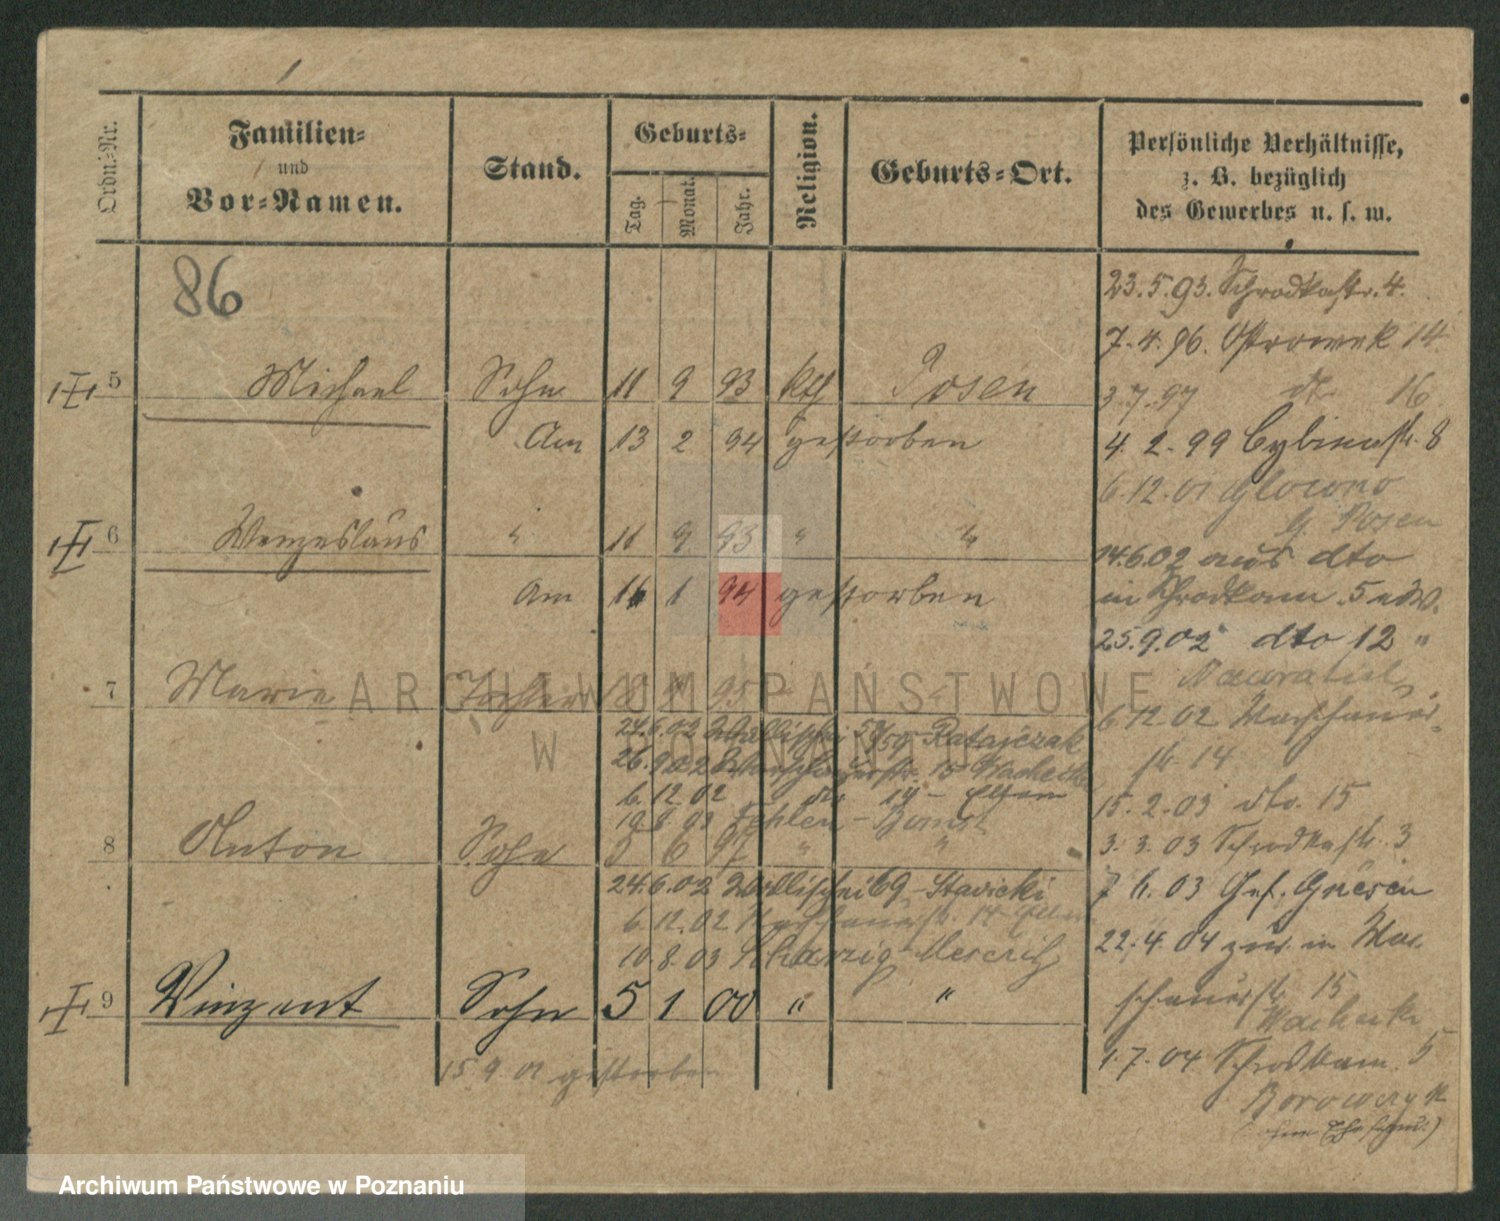 Ordn.-Nr.
Familien-
und
Vor-Namen.
Stand.
Geburts-
Tag.
Monat.
Jahr.
Religion.
Geburts-Ort.
Persönliche Verhältnisse,
z. B. bezüglich
des Gewerbes u. s. w.
86
5 Michael Sohn 11 9 93 kth Posen
Am 13 2 94 gestorben
6 Wenzeslaus " 11 9 93 " "
Am 16 1 94 gestorben
7 Marie Tochter 95
24.6.02 Wallischei 58/59 Ratajczak
26.9.02 Warschauerstr. 15 Wachecki
6.12.02 do 14 - Eltern
19.8.03 - Bomst
8 Anton Sohn 6 97 " "
24.6.02 Wallischei 69 - Stawicki
6.12.02 Warschauerstr. 14 Eltern
10.8.03 - Meseritz
9 Vinzent Sohn 5 1 00 " "
15 9 01 gestorben
23.5.93. Schrodkastr. 4.
7.4.96. Ostrowek 14
3.7.97 do 16
4.2.99 Cybinastr. 8
6.12.01 Glowno
Posen
14.6.02 aus dto
in Schrodkam. 5
25.9.02 dto 12 "
6.12.02 Warschauer-
str. 14
15.2.03 dto. 15
3.3.03 Schrodkastr. 3
03 Gef. Gnesen
22.4.04 zur. in War-
schauerstr. 15
Wachecki
1.7.04 Schrodkam. 5
ARCHIWUM PAŃSTWOWE
W POZNANIU
Archiwum Państwowe w Poznaniu